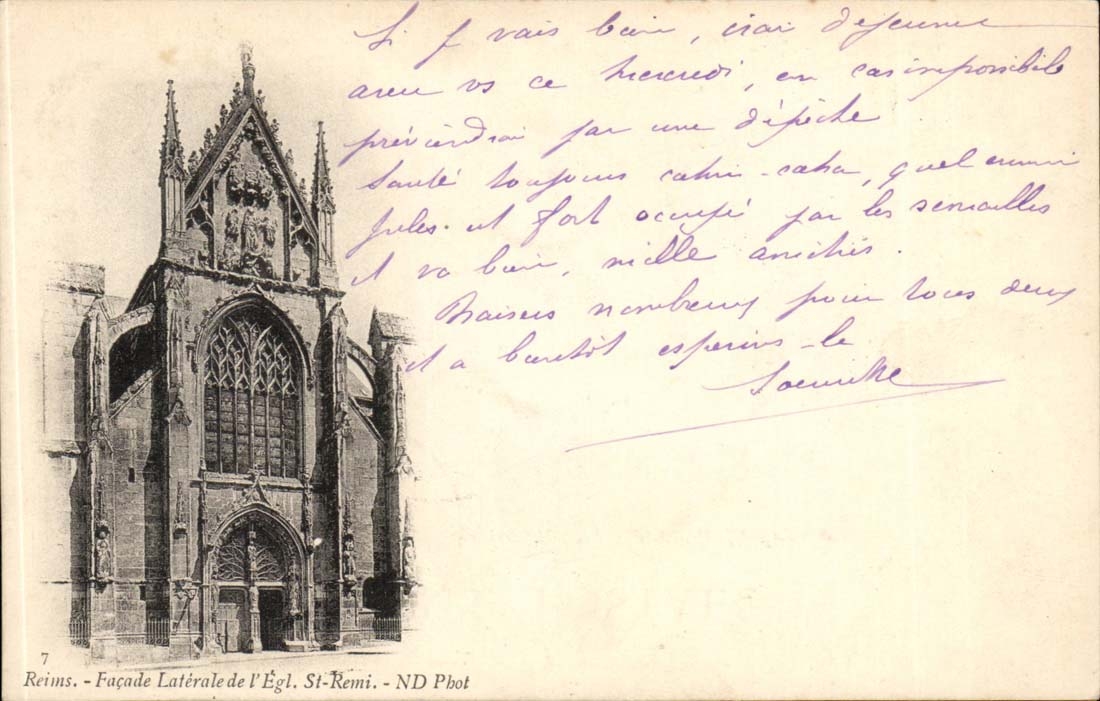 Si je vais bien, irai déjeuner
avec vs ce Mercredi, en cas impossible
préviendrai par une dépêche
Santé toujours cahin-caha, quel ennui
Jules est fort occupé par les semailles
et va bien, mille amitiés.
Baisers nombreux pour tous deux
et a bientôt espérons-le
7
Reims. - Façade Latérale de l'Égl. St-Remi. - ND Phot